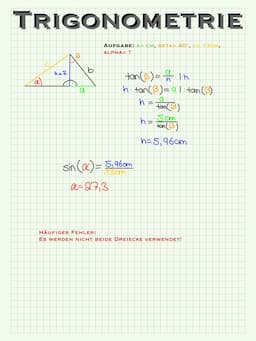 TRIGONOMETRIE
AUFGABE: a= cm, BETA= 40°,
ALPHA= ?
c
β
h=?
b
α
a
tan(β)= a/h | h
h tan(β)= a | tan(β)
h = a/tan(β)
h = 5cm/tan(β)
h=5,96cm
sin(α)= 5,96cm
α=27,3
HÄUFIGER FEHLER:
ES WERDEN NICHT BEIDE DREIECKE VERWENDET!